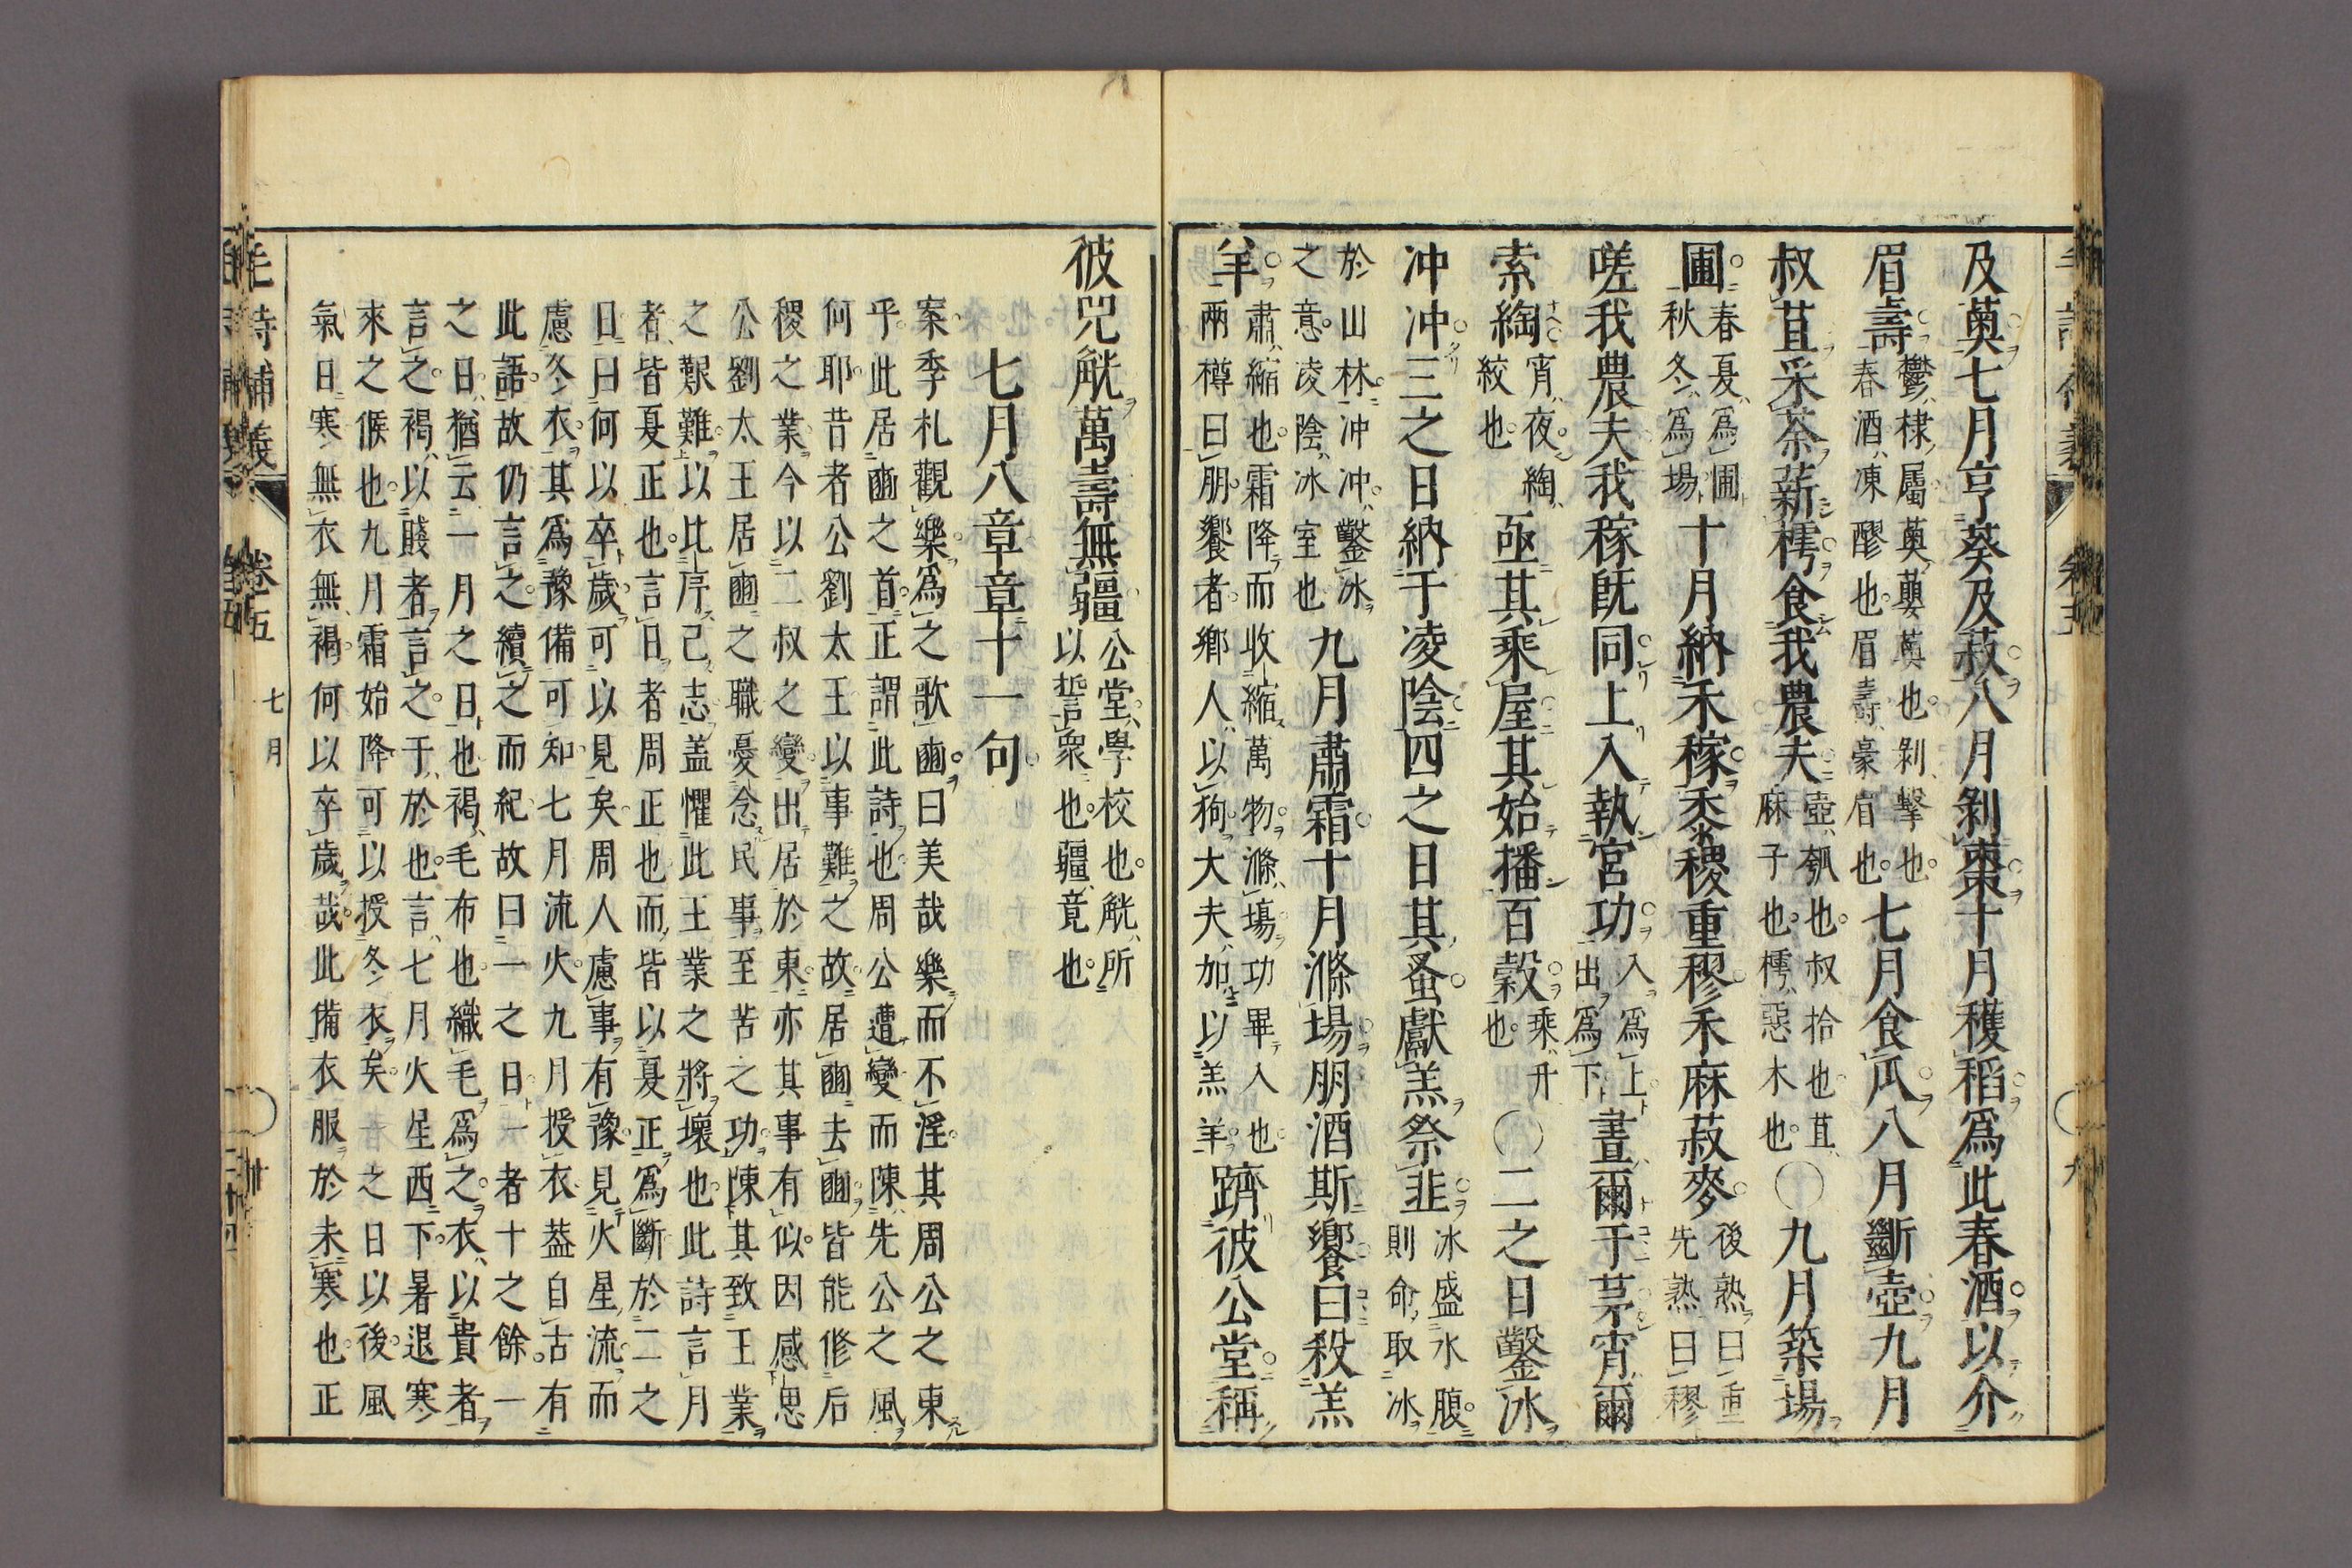 及薁七月亨葵及菽八月剝棗十月穫稻爲此春酒以介
眉壽鬱棣屬薁蘡薁也剝擊也春酒凍醪也眉壽豪眉也七月食瓜八月斷壺九月
叔苴采荼薪樗食我農夫壺瓠也叔拾也苴麻子也樗惡木也○九月築場
圃春夏爲圃秋冬爲場十月納禾稼黍稷重穋禾麻菽麥後熟曰重先熟曰穋
嗟我農夫我稼旣同上入執宮功入爲上出爲下晝爾于茅宵爾
索綯宵夜綯絞也亟其乘屋其始播百穀乘升也○二之日鑿冰
冲冲三之日納于凌陰四之日其蚤獻羔祭韭冰盛水腹則命取冰
於山林冲冲鑿冰之意凌陰冰室也九月肅霜十月滌場朋酒斯饗曰殺羔
羊肅縮也霜降而收縮萬物滌場功畢入也兩樽曰朋饗者鄉人以狗大夫加以羔羊躋彼公堂稱
彼兕觥萬壽無疆公堂學校也觥所以誓衆也疆竟也
七月八章章十一句
案季札觀樂爲之歌豳曰美哉樂而不淫其周公之東
乎此居豳之首正謂此詩也周公遭變而陳先公之風
何耶昔者公劉太王以事難之故居豳去豳皆能修后
稷之業今以二叔之變出居於東亦其事有似因感思
公劉太王居豳之職憂念民事至苦之功陳其致王業
之艱難以比序己志盖懼此王業之將壞也此詩言月
者皆夏正也言日者周正也而皆以夏正爲斷於二之
日曰何以卒歲可以見矣周人慮事有豫見火星流而
慮冬衣其爲豫備可知七月流火九月授衣盖自古有
此語故仍言之續之而紀故曰一之日一者十之餘一
之日猶云一月之日也褐毛布也織毛爲之衣以貴者
言之褐以賤者言之于於也言七月火星西下暑退寒
來之候也九月霜始降可以授冬衣矣一之日以後風
氣日寒無衣無褐何以卒歲哉此備衣服於未寒也正
毛詩補義
卷五
七月